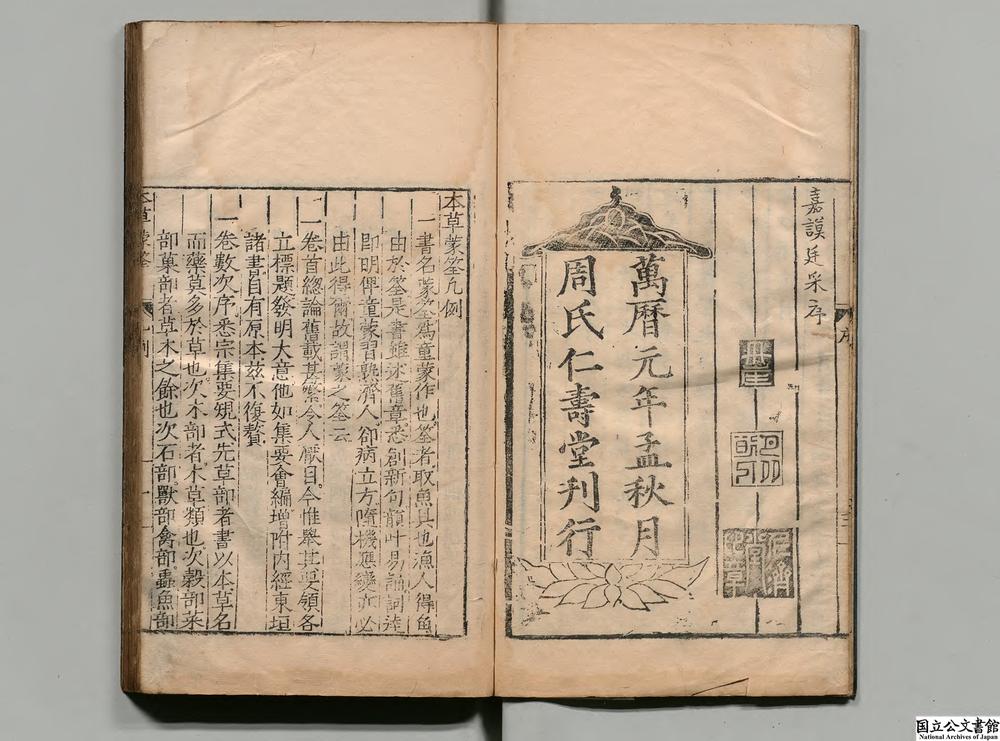 序
嘉謨廷采序
萬曆元年孟秋月
周氏仁壽堂刊行
本草蒙筌凡例
一書名蒙筌爲童蒙作也筌者取魚具也漁人得魚
由於筌是書雖述舊章悉創新句韻叶易誦詞達
即明俾童蒙習熟濟人卻病立方隨機應變亦必
由此得爾故謂蒙之筌云
一卷首總論舊載甚繁令人厭目今惟舉其要領各
立標題發明大意他如集要會編增附内經東垣
諸書自有原本茲不復贅
一卷數次序悉宗集要規式先草部者書以本草名
而藥莫多於草也次木部者木草類也次穀部菜
部菓部者草木之餘也次石部獸部禽部蟲魚部
本草蒙筌 凡例
国立公文書館
National Archives of Japan